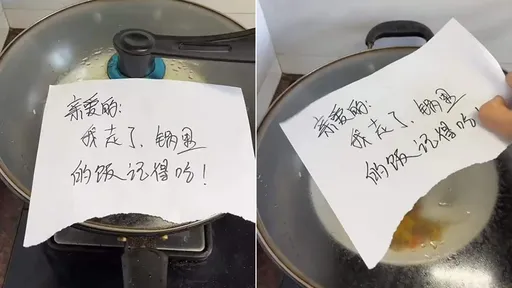 亲爱的:
我走了,锅里
的饭记得吃!
亲爱的:
我走了,锅里
的饭记得吃!